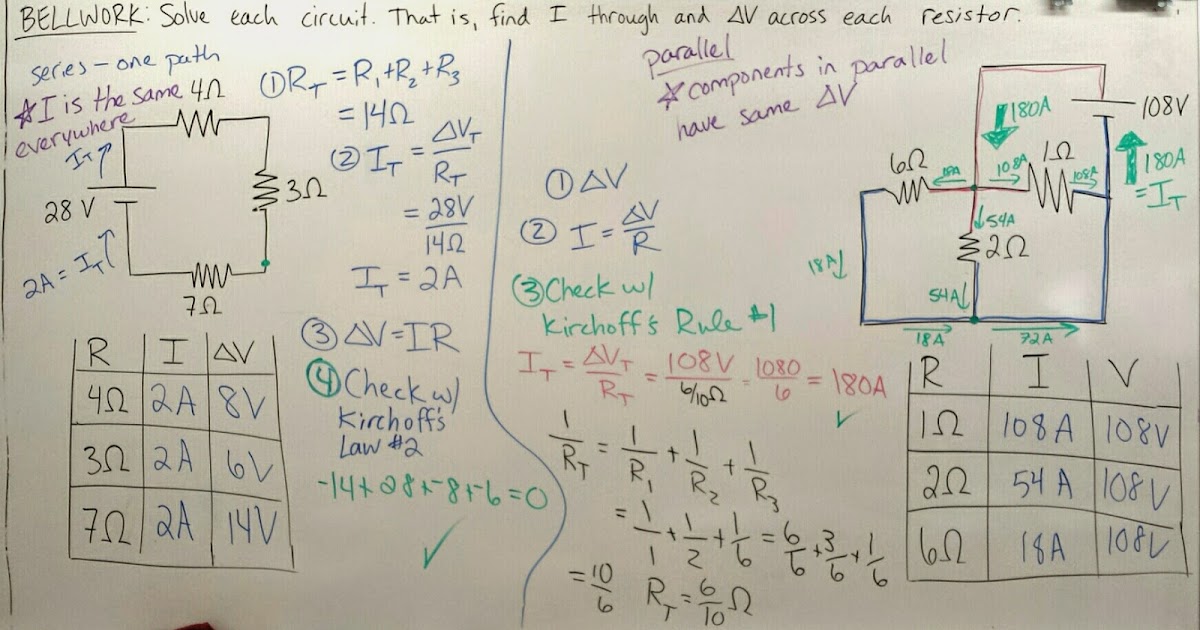 BELLWORK: Solve each circuit. That is, find I through and ΔV across each resistor.
series – one path
☆ I is the same
everywhere
4Ω
3Ω
7Ω
28 V
I_T
2A = I_T
① R_T = R₁+R₂+R₃
= 14Ω
② I_T = ΔV_T / R_T
= 28V / 14Ω
I_T = 2A
③ ΔV=IR
④ Check w/
Kirchoff's
Law #2
-14+28+-8+-6=0
✓
R I ΔV
4Ω 2A 8V
3Ω 2A 6V
7Ω 2A 14V
parallel
☆ components in parallel
have same ΔV
① ΔV
② I = ΔV / R
③ Check w/
Kirchoff's Rule #1
I_T = ΔV_T / R_T = 108V / 6/10Ω = 1080 / 6 = 180A
✓
1/R_T = 1/R₁ + 1/R₂ + 1/R₃
= 1/1 + 1/2 + 1/6 = 6/6 + 3/6 + 1/6
= 10/6 R_T = 6/10 Ω
180A
108V
6Ω
18A
108A
1Ω
108A
180A
= I_T
54A
2Ω
18A
54A
18A
72A
R I V
1Ω 108A 108V
2Ω 54A 108V
6Ω 18A 108V